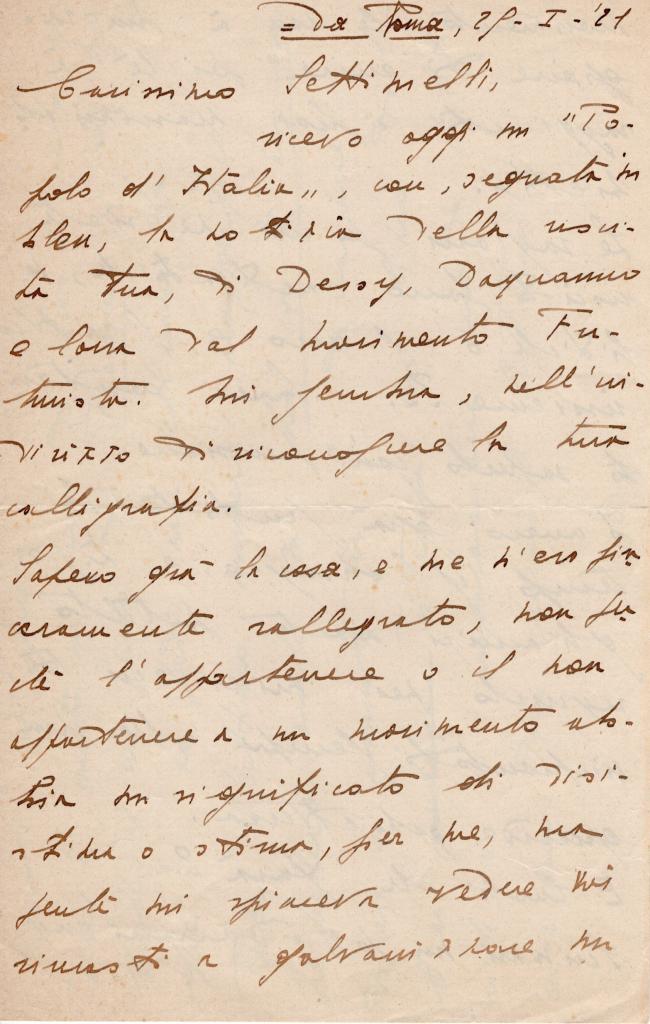 = Da Roma, 25-I-'21
Carissimo Settimelli,
ricevo oggi un "Po-
polo d'Italia", con, segnata in
bleu, la notizia della usci-
ta tua, di Dessy, Daquanno
e Carli dal movimento Fu-
turista. Mi sembra, nell'in-
dirizzo di riconoscere la tua
calligrafia.
Sapevo già la cosa, e me n'ero sin-
ceramente rallegrato, non per-
chè l'appartenere o il non
appartenere a un movimento ab-
bia un significato di disi-
stima o stima, per me, ma
perchè mi spiaceva vedere voi
rimasti a galvanizzare un